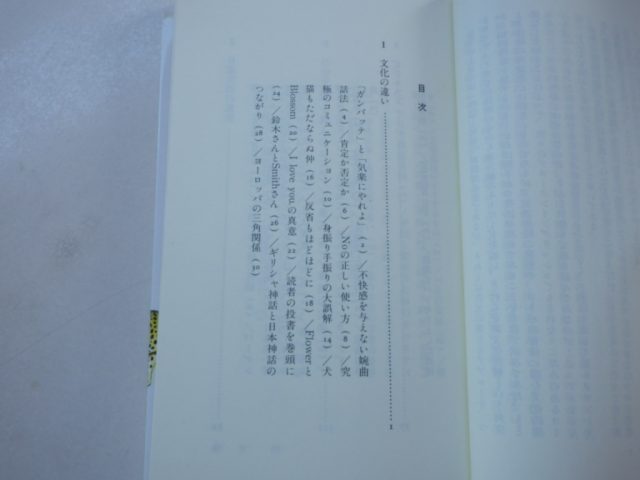 目次
1 文化の違い 1
「ガンバッテ」と「気楽にやれよ」(2)／不快感を与えない婉曲
話法(4)／肯定か否定か(6)／Noの正しい使い方(8)／究
極のコミュニケーション(10)／身振り手振りの大誤解(14)／犬
猫もただならぬ仲(16)／反省もほどほどに(18)／Flowerと
Blossom(2)／I love you.の真意(22)／読者の投書を巻頭に
(24)／鈴木さんとSmithさん(26)／ギリシャ神話と日本神話の
つながり(28)／ヨーロッパの三角関係(30)